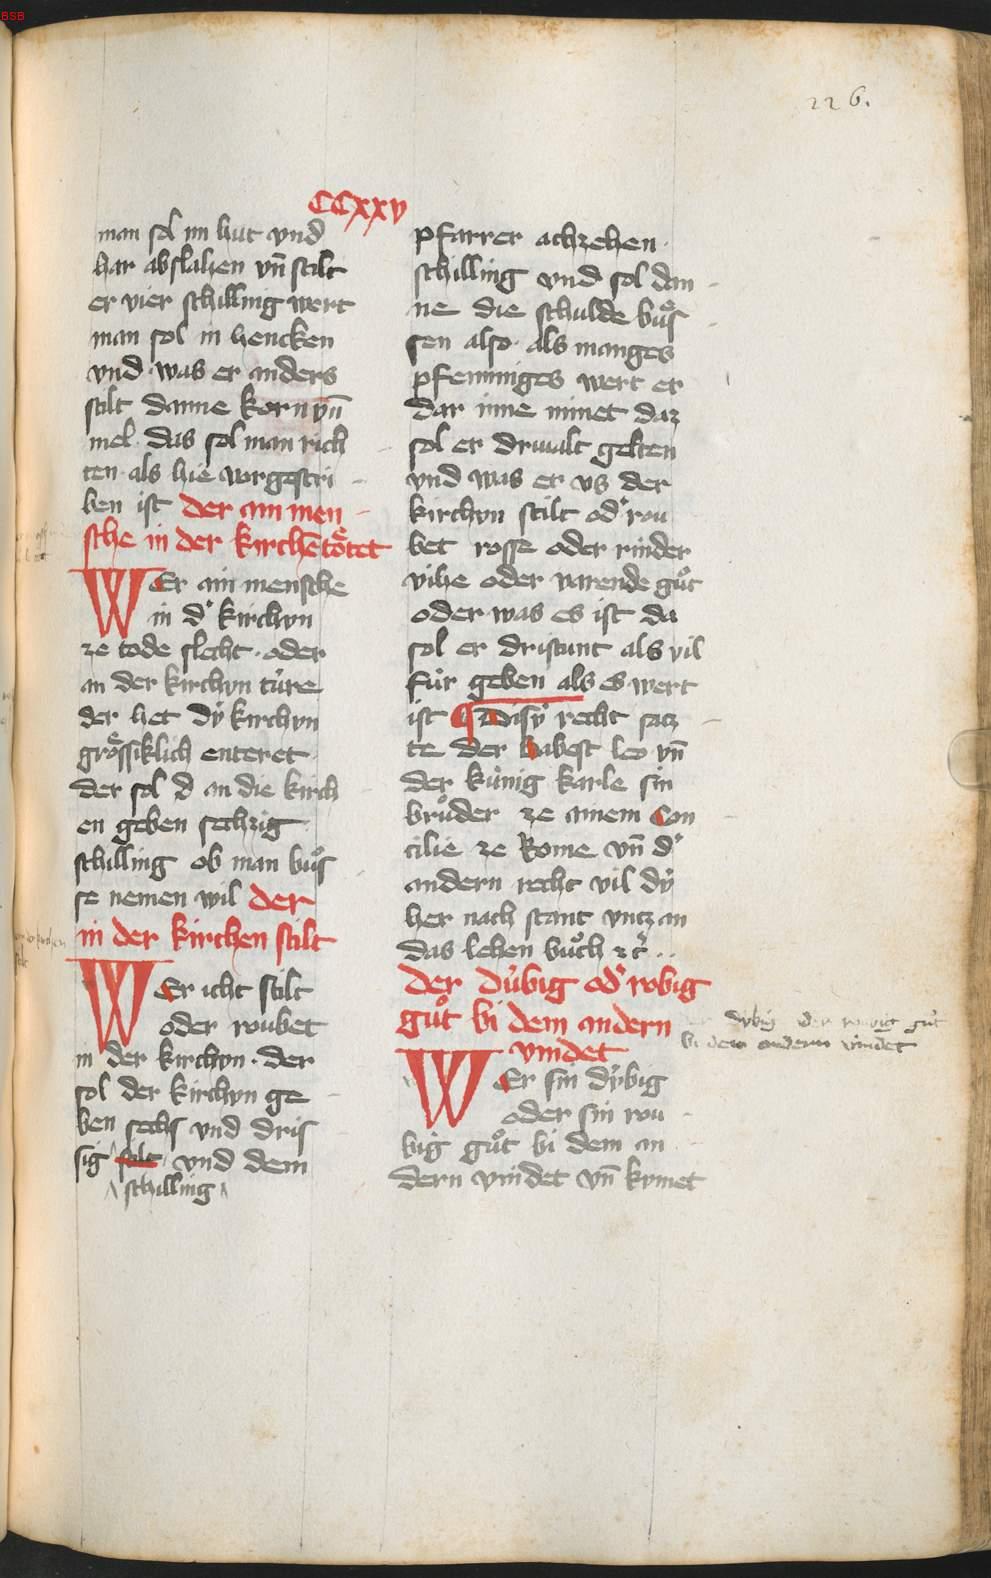 BSB
226.
CCxxv
man sol im hut vnd
har abslahen vn̄ stilt
er vier schilling wert
man sol in hencken
vnd was er anders
stilt danne korn vn̄
mel· das sol man rich
ten· als hie vorgeschri
ben ist der ain men
sche in der kirchē toͤtet
WEr ain mensche
in d' kirchyn
ze tode slecht· oder
an der kirchyn türe
der het dÿ kirchyn
groͤssiklich enteret
der sol d an die kirch
en geben sechzig
schilling ob man buͦs
se nemen wil der
in der kirchen stilt
WEr icht stilt
oder roubet
in der kirchyn· der
sol der kirchyn ge
ben sechs vnd dris
sig stilt vnd dem
schilling
pfarrer achzehen·
schilling vnd sol dan
ne die schulde buͦs
sen also· als manges
pfenninges wert er
dar inne nimet daz
sol er driualt gelten
vnd was er vs der
kirchyn stilt od' rou
bet rosse oder rinder
vihe oder varende guͦt
oder was es ist da
sol er dristunt als vil
für geben als es wert
ist Disÿ recht satz
te der babest leo vn̄
der künig karle sin
bruͦder ze ainem Con
cilie ze Rome vn̄ d'
andern recht vil dÿ
her nach stant vntz an
das lehen buͦch ꝛc̄..
der dübig od' robig
guͦt bi dem andern
vindet
WEr sin dÿbig
oder sin rou
big guͦt bi dem an
dern vindet vn̄ kymet
dybig oder roubig guͦt
bi dem andern vindet